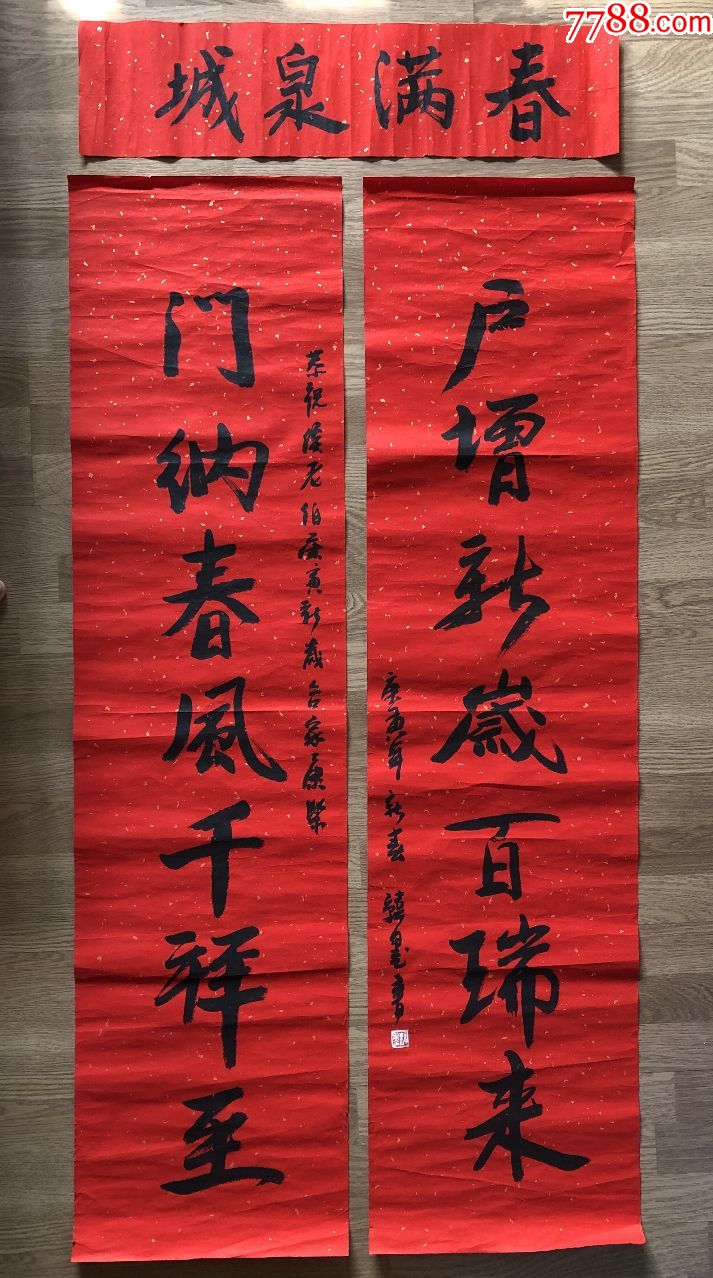 7788.com
春满泉城
户增新歲百瑞来
庚寅年新春 韓 书
恭祝 老伯庚寅新歲合家康樂
门纳春風千祥至